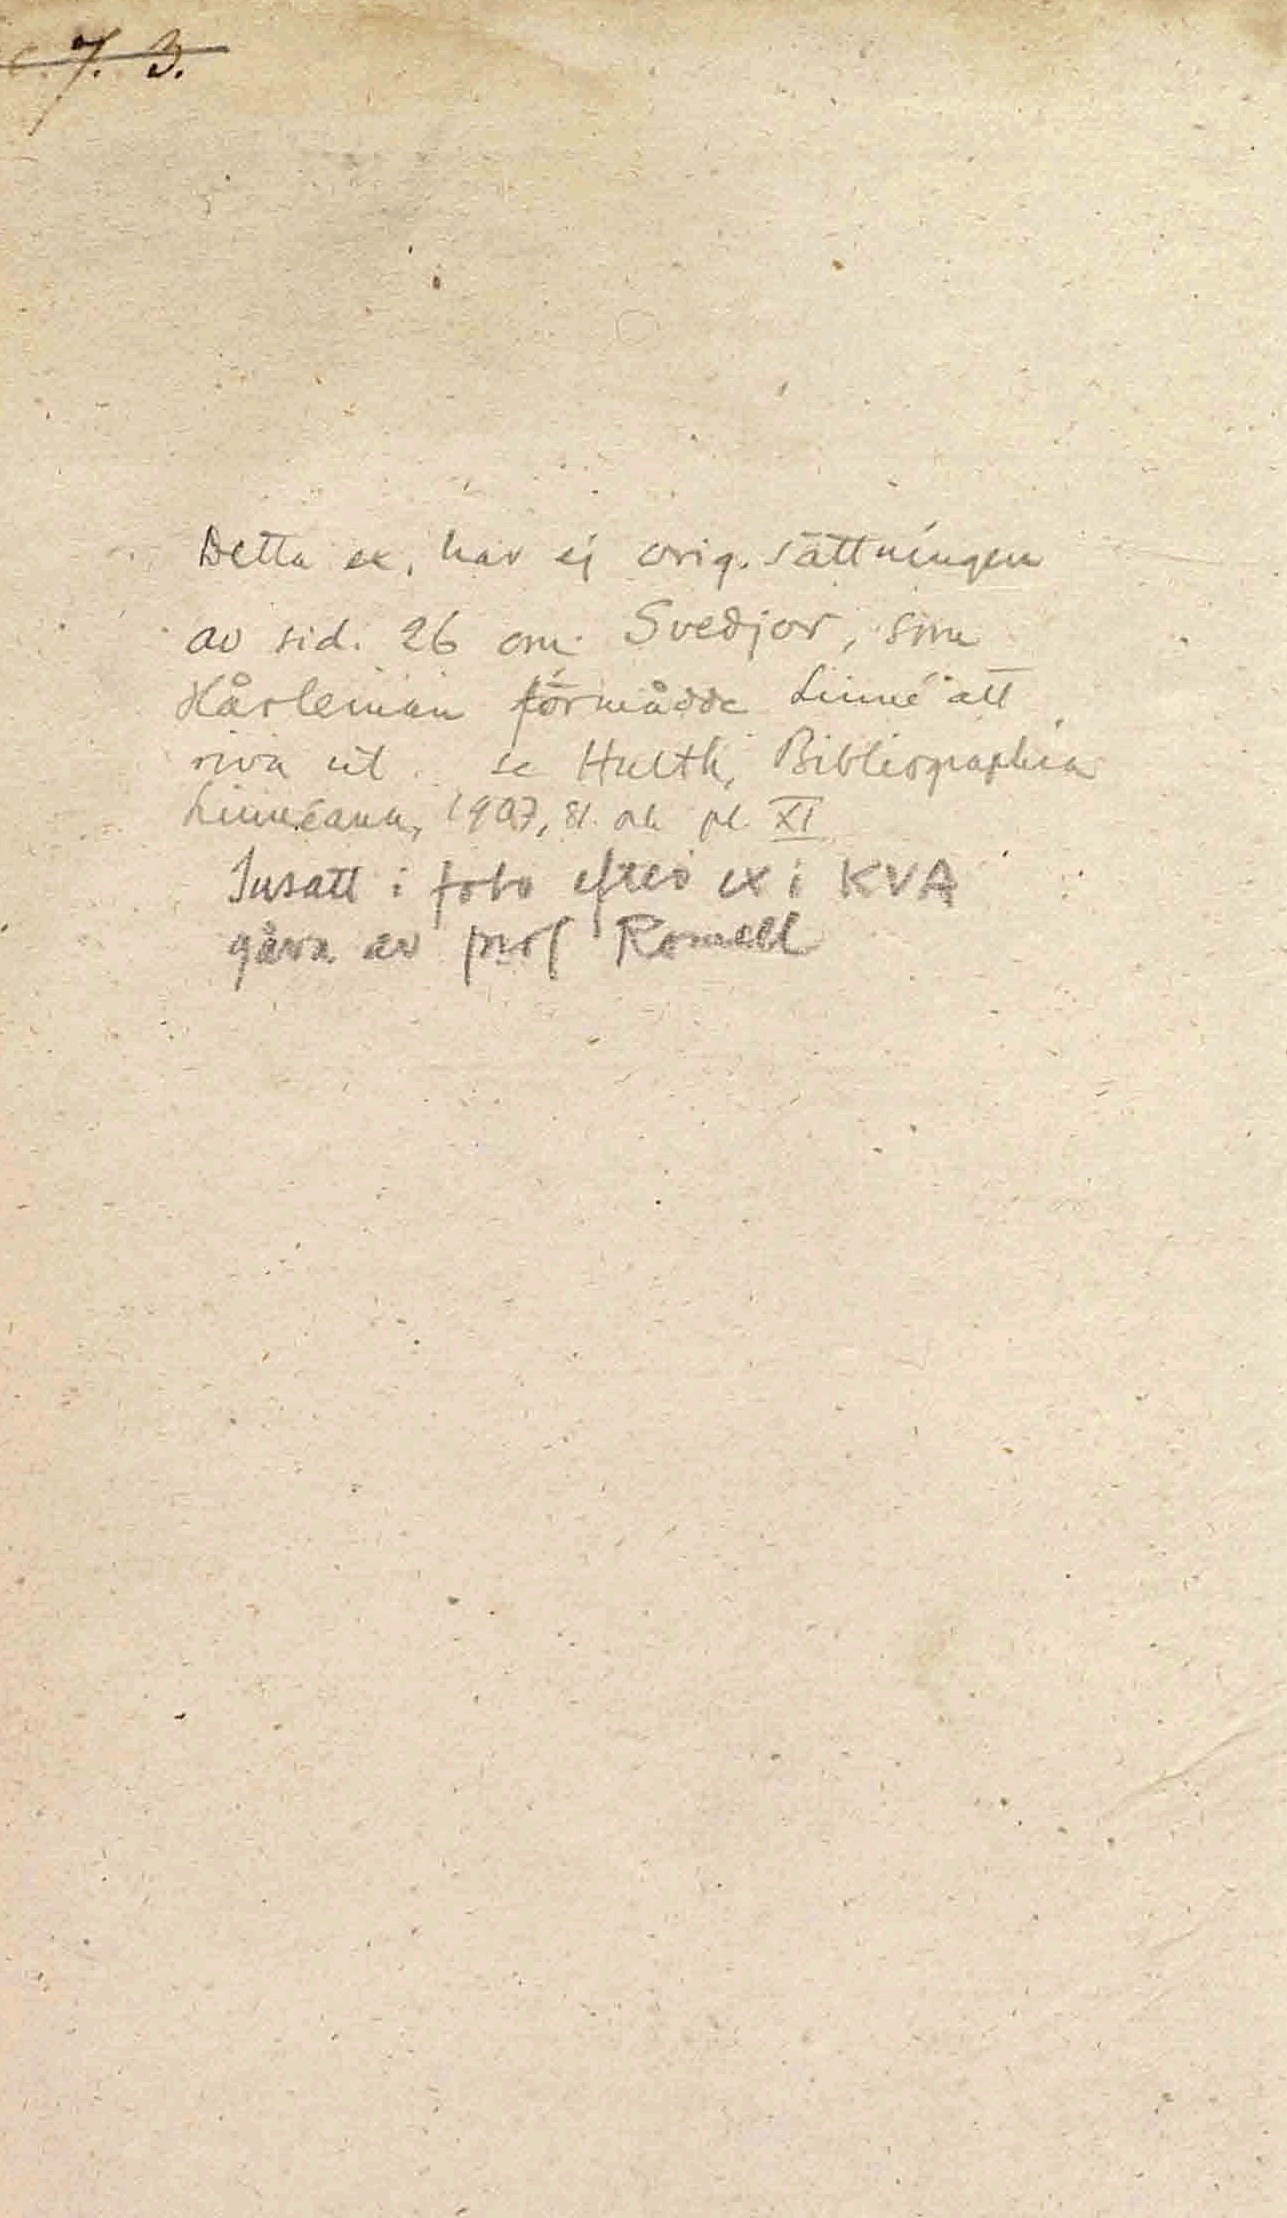 7. 3.
Detta ex. har ej orig. sättningen
av sid. 26 om Svedjor, som
Hårleman förmådde Linné att
riva ut. se Hulth, Bibliographia
Linnéana, 1907, 81. och pl. XI
Insatt i foto efter ex i KVA
gåva av prof Romell